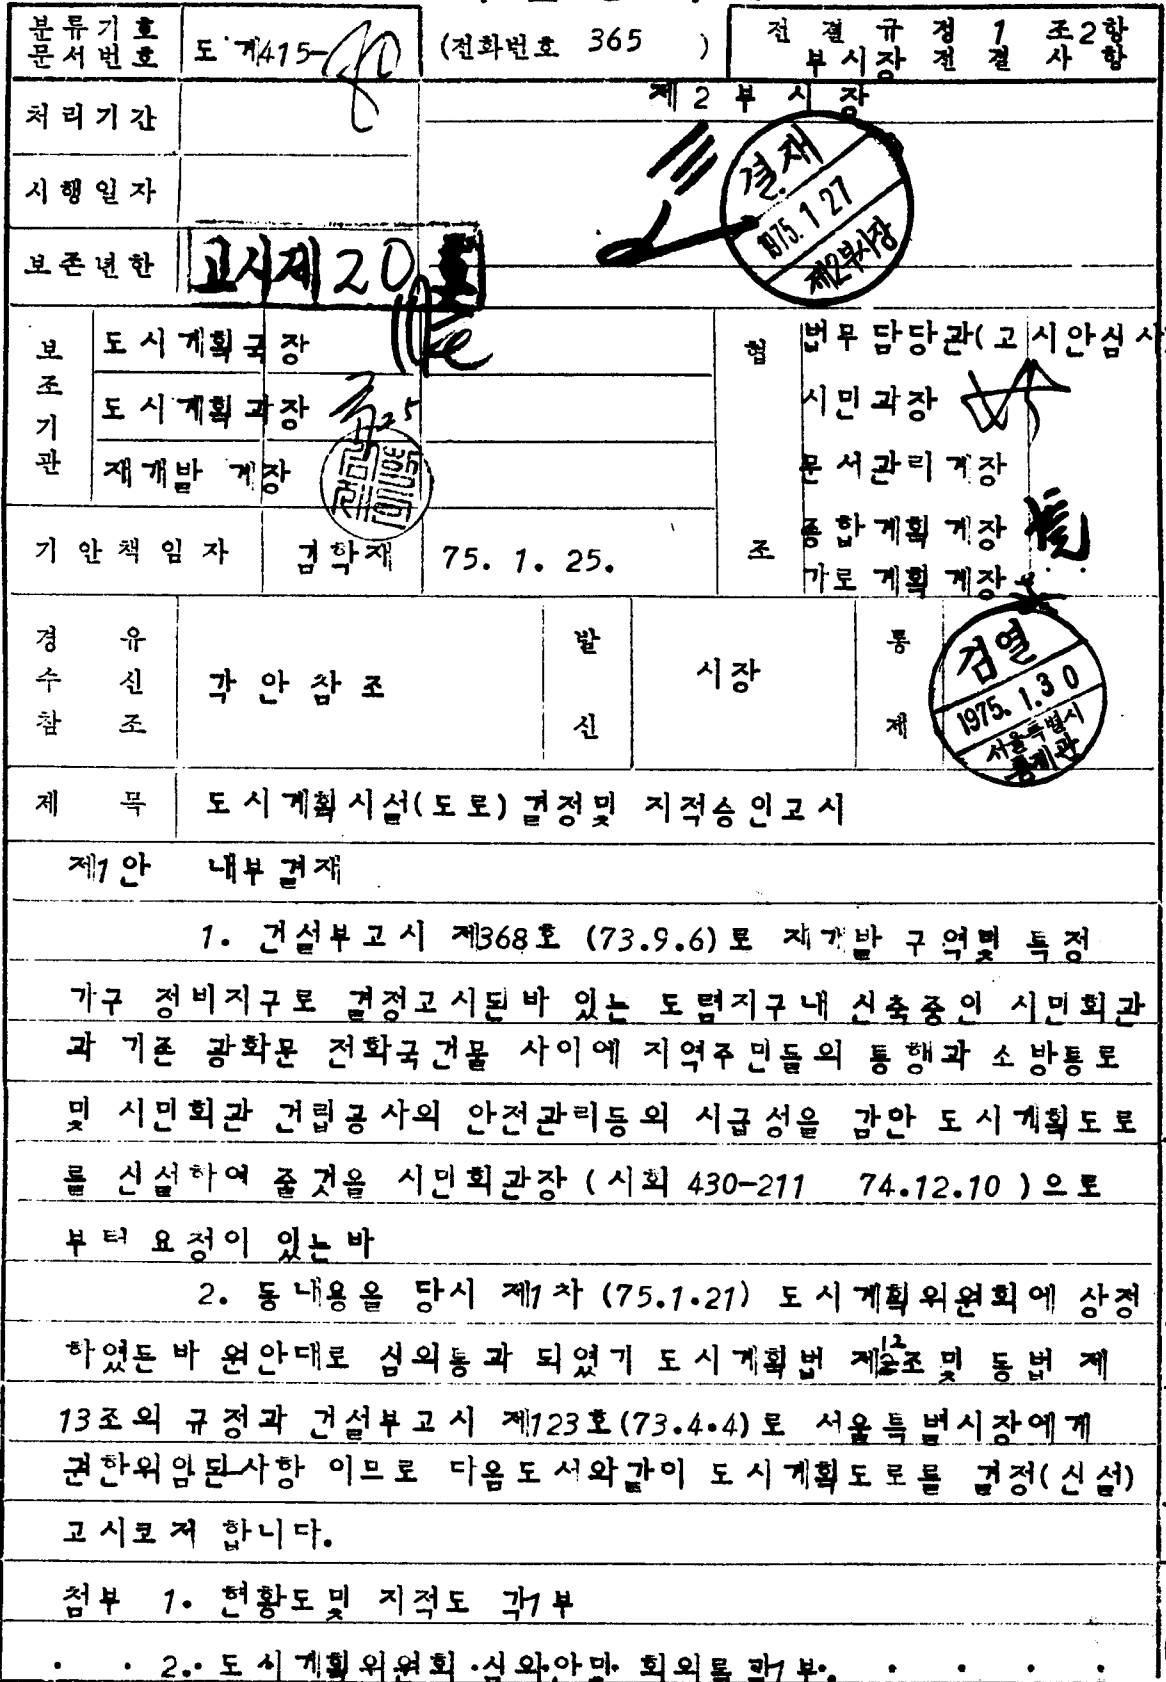 분류기호
문서번호
도계415-
(전화번호 365 )
전결규정 1 조2항
부시장 전결사항
처리기간
제2부시장
결재
1975. 1 27
제2부시장
시행일자
보존년한
고시제20호
보조기관
도시계획국장
도시계획과장
25
재개발 계장
협조
법무담당관(고시안심사
시민과장
문서관리계장
종합계획계장
가로계획계장
기안책임자
김학재
75. 1. 25.
경유
수신
참조
각안참조
발신
시장
통제
검열
1975. 1. 3 0
서울특별시
통제관
제 목
도시계획시설(도로)결정및 지적승인고시
제1안 내부결재
1. 건설부고시 제368호 (73.9.6)로 재개발 구역및 특정
가구 정비지구로 결정고시된바 있는 도렴지구내 신축중인 시민회관
과 기존 광화문 전화국건물 사이에 지역주민들의 통행과 소방통로
및 시민회관 건립공사의 안전관리등의 시급성을 감안 도시계획도로
를 신설하여 줄것을 시민회관장 (시회 430-211 74.12.10 )으로
부터 요청이 있는바
2. 동내용을 당시 제1차 (75.1.21) 도시계획위원회에 상정
하였든바 원안대로 심의통과 되였기 도시계획법 제12조및 동법 제
13조의 규정과 건설부고시 제123호(73.4.4)로 서울특별시장에게
권한위임된사항 이므로 다음도서와같이 도시계획도로를 결정(신설)
고시코저 합니다.
첨부 1. 현황도및 지적도 각1부
2. 도시계획위원회 심의안및 회의록 각1부.